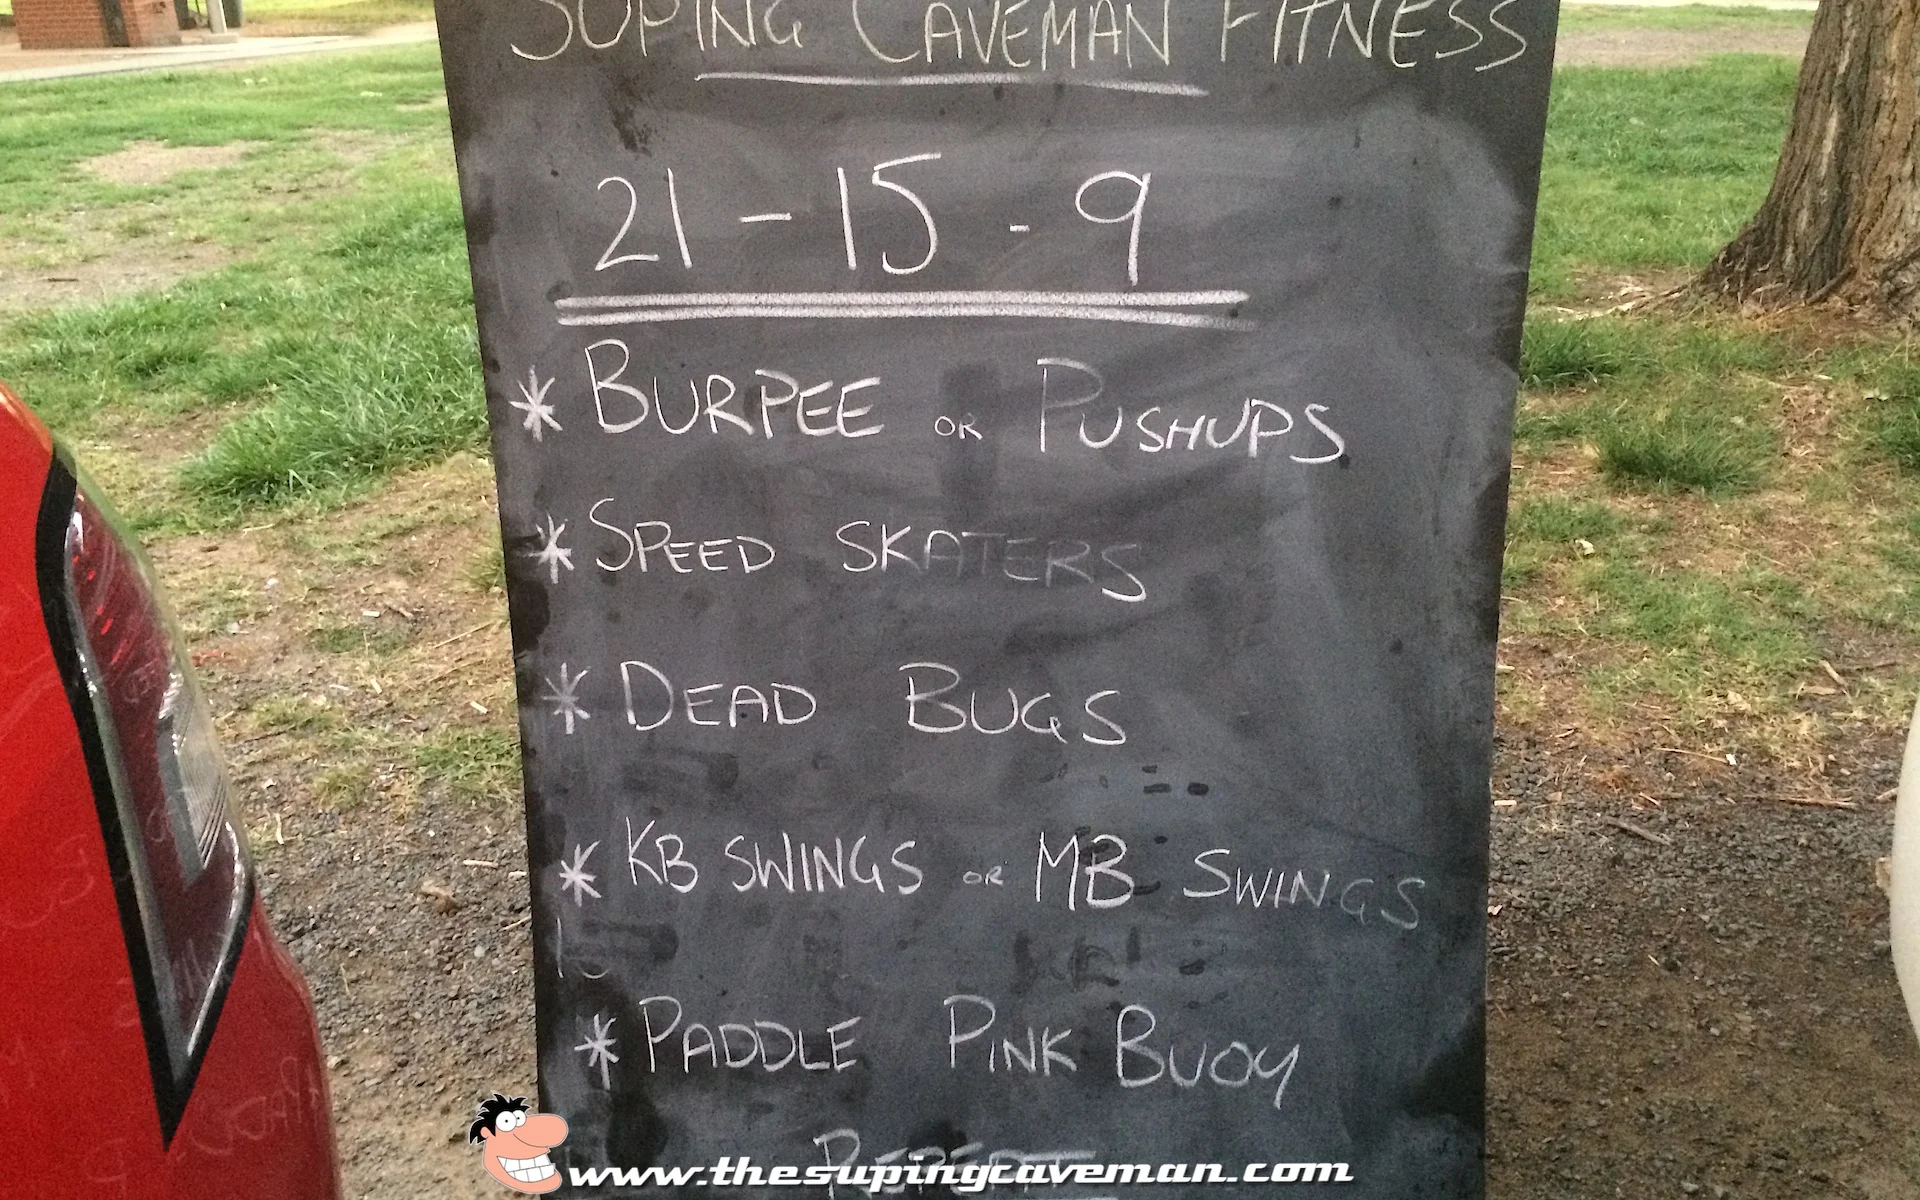 SUPING CAVEMAN FITNESS
21 - 15 - 9
* BURPEE OR PUSHUPS
* SPEED SKATERS
* DEAD BUGS
* KB SWINGS OR MB SWINGS
* PADDLE PINK BUOY
REPEAT
www.thesupingcaveman.com